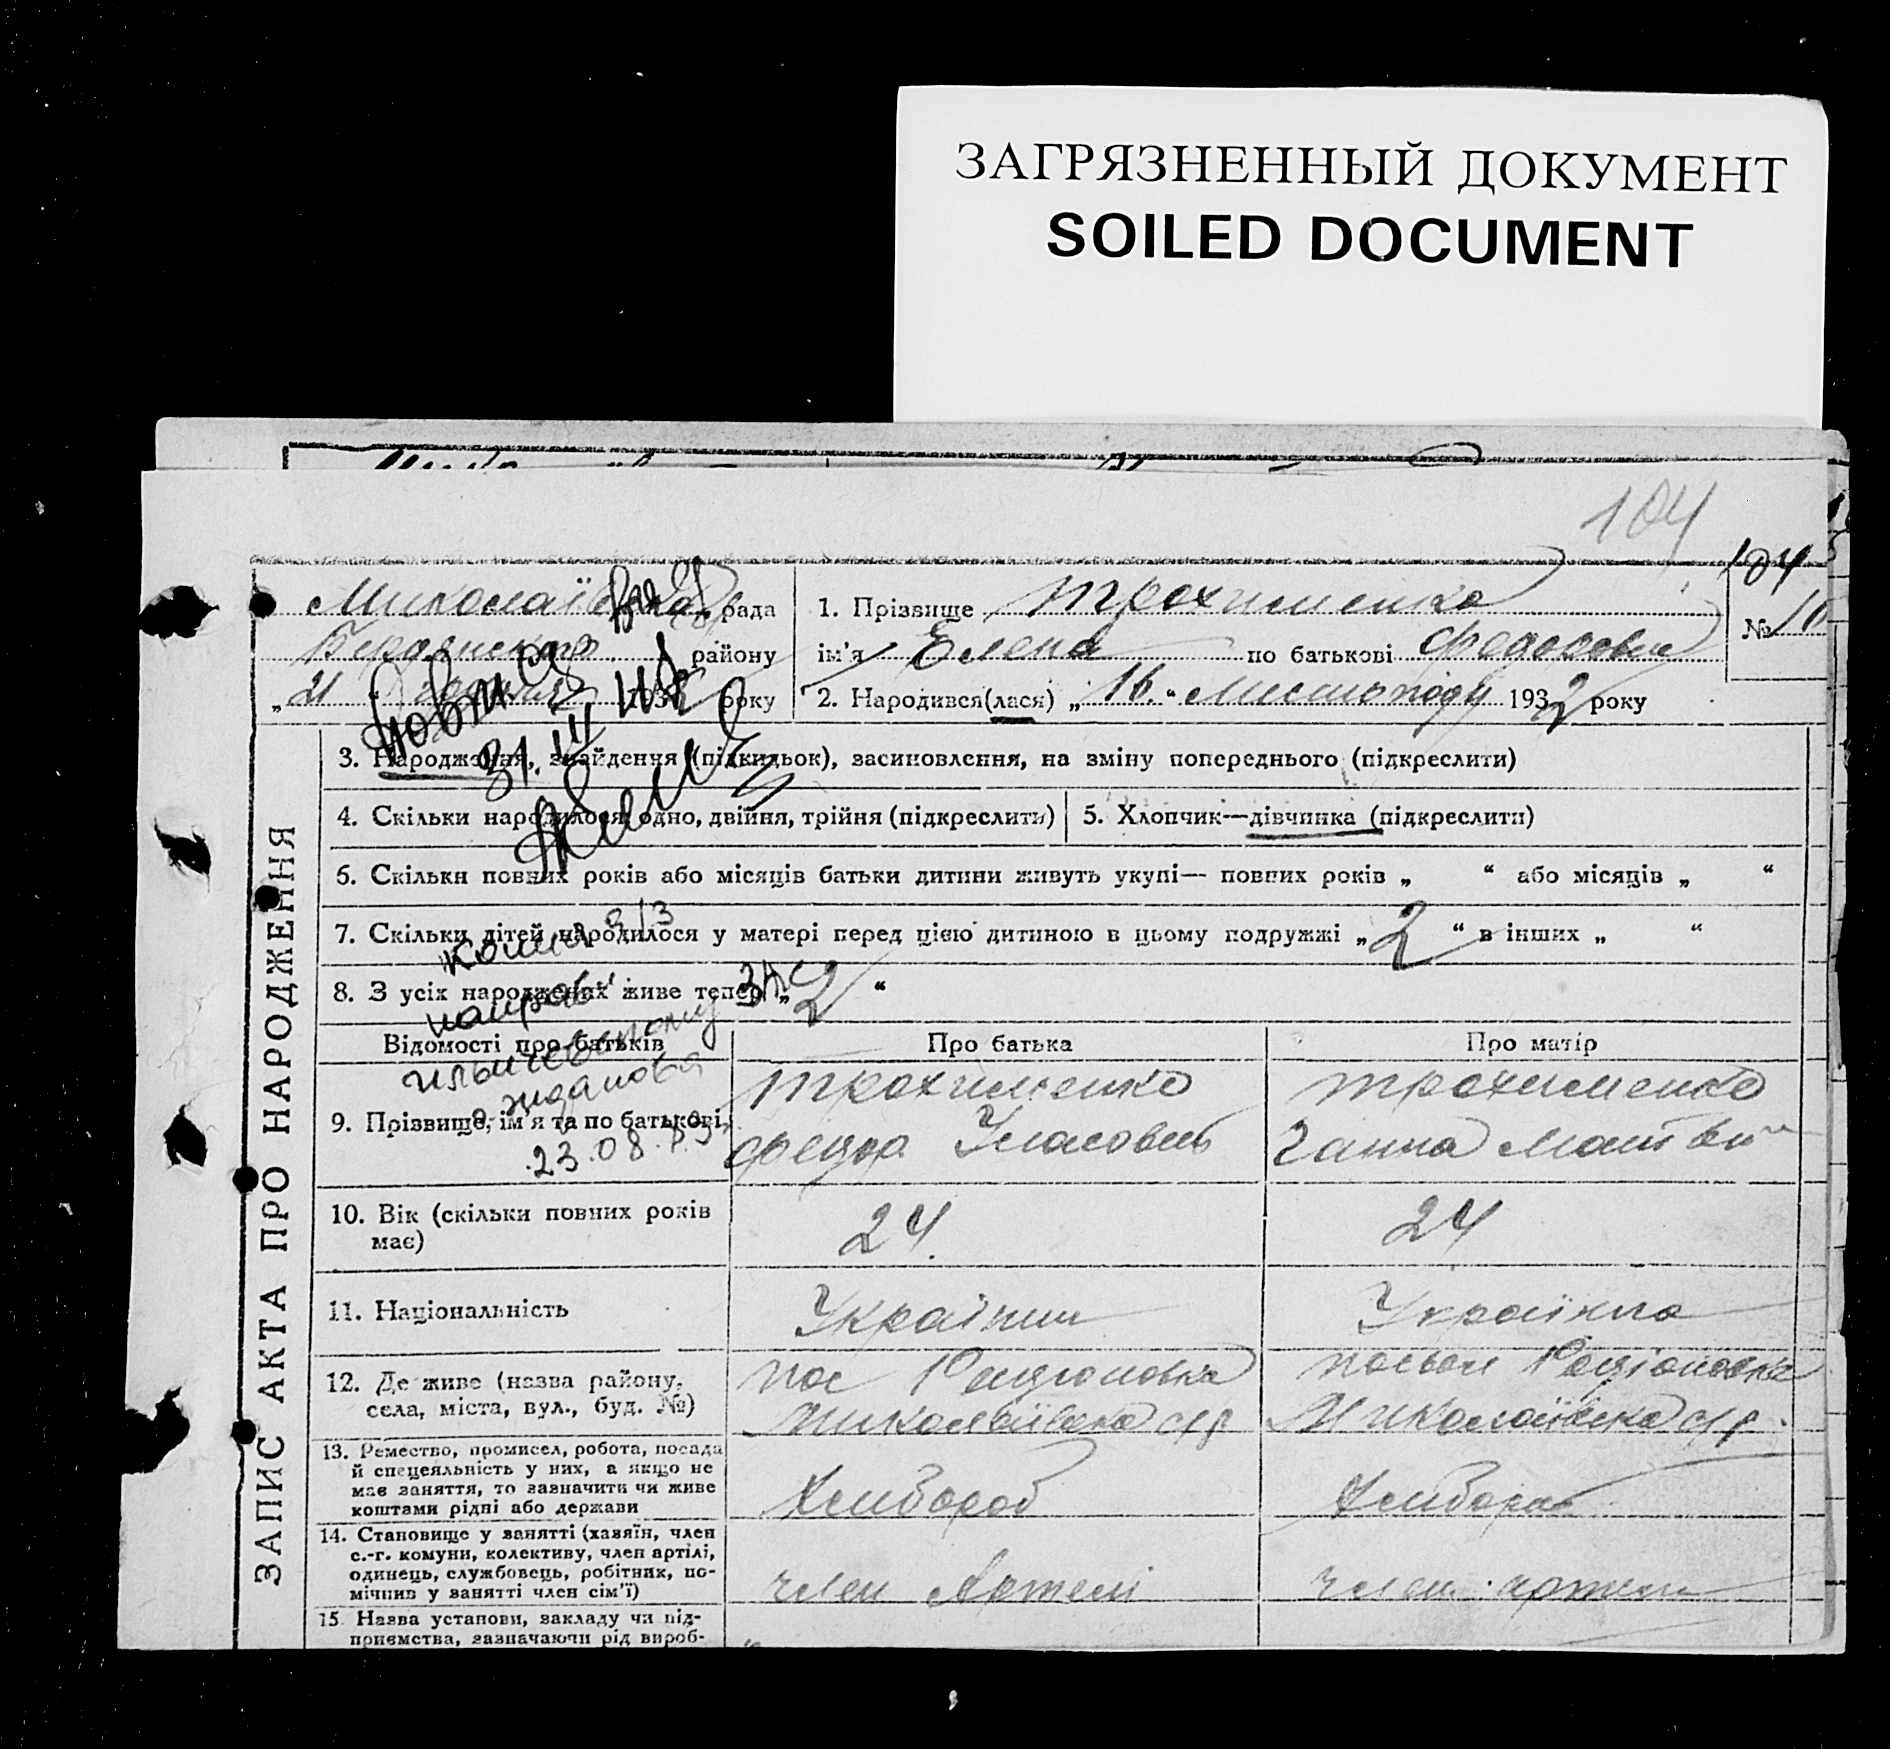 ЗАГРЯЗНЕННЫЙ ДОКУМЕНТ
SOILED DOCUMENT
104
104
Миколаївська рада
району
„21“ 1932 року
1. Прізвище Трохименко
ім'я Елена по батькові Федосовна
2. Народився(лася) „16“ Листопаду 1932 року
№ 10
ЗАПИС АКТА ПРО НАРОДЖЕННЯ
3. Народження, знайдення (підкидьок), засиновлення, на зміну попереднього (підкреслити)
31.III
4. Скільки народилося: одно, двійня, трійня (підкреслити)
5. Хлопчик—дівчинка (підкреслити)
6. Скільки повних років або місяців батьки дитини живуть укупі— повних років „ “ або місяців „ “
7. Скільки дітей народилося у матері перед цією дитиною в цьому подружжі „2“ в інших „ “
копия
8. З усіх народжених живе тепер „2“
направ
Відомості про батьків
Про батька
Про матір
Ильичевскому
Жданова
23.08.
9. Прізвище, ім'я та по батькові
Трохименко
Федор Уласович
Трохименко
Ганна
10. Вік (скільки повних років має)
24
24
11. Національність
Українец
Українка
12. Де живе (назва району, села, міста, вул., буд. №)
пос Радіоновка
Миколаївська с/р
посьол Радіоновка
Миколаївська с/р.
13. Ремество, промисел, робота, посада й спецеяльність у них, а якщо не має заняття, то зазначити чи живе коштами рідні або держави
Хлибороб
Хлибороб
14. Становище у занятті (хазяїн, член с.-г. комуни, колективу, член артілі, одинець, службовець, робітник, помічник у занятті член сім'ї)
член Артелі
член артели
15. Назва установи, закладу чи підприємства, зазначаючи рід вироб-